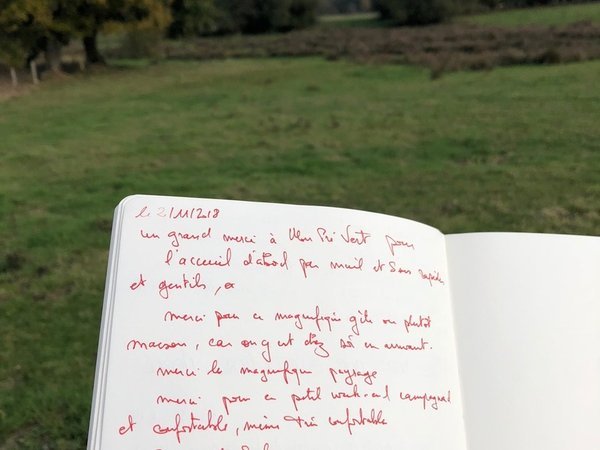 le 2/11/2018
un grand merci à Mon Pré Vert pour
l'accueil d'abord par mail et sms rapides
et gentils,
merci pour ce magnifique gîte ou plutôt
maison, car on y est chez soi en arrivant.
merci le magnifique paysage
merci pour ce petit week-end campagnard
et confortable, même très confortable